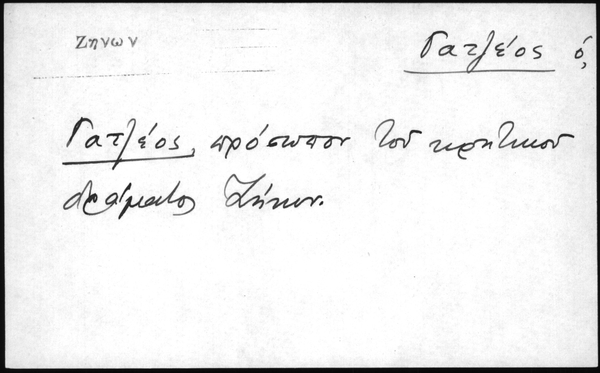 Ζηνων
Γατζέος ὁ,
Γατζέος, πρόσωπον τοῦ κρητικοῦ
δράματος Ζήνων.